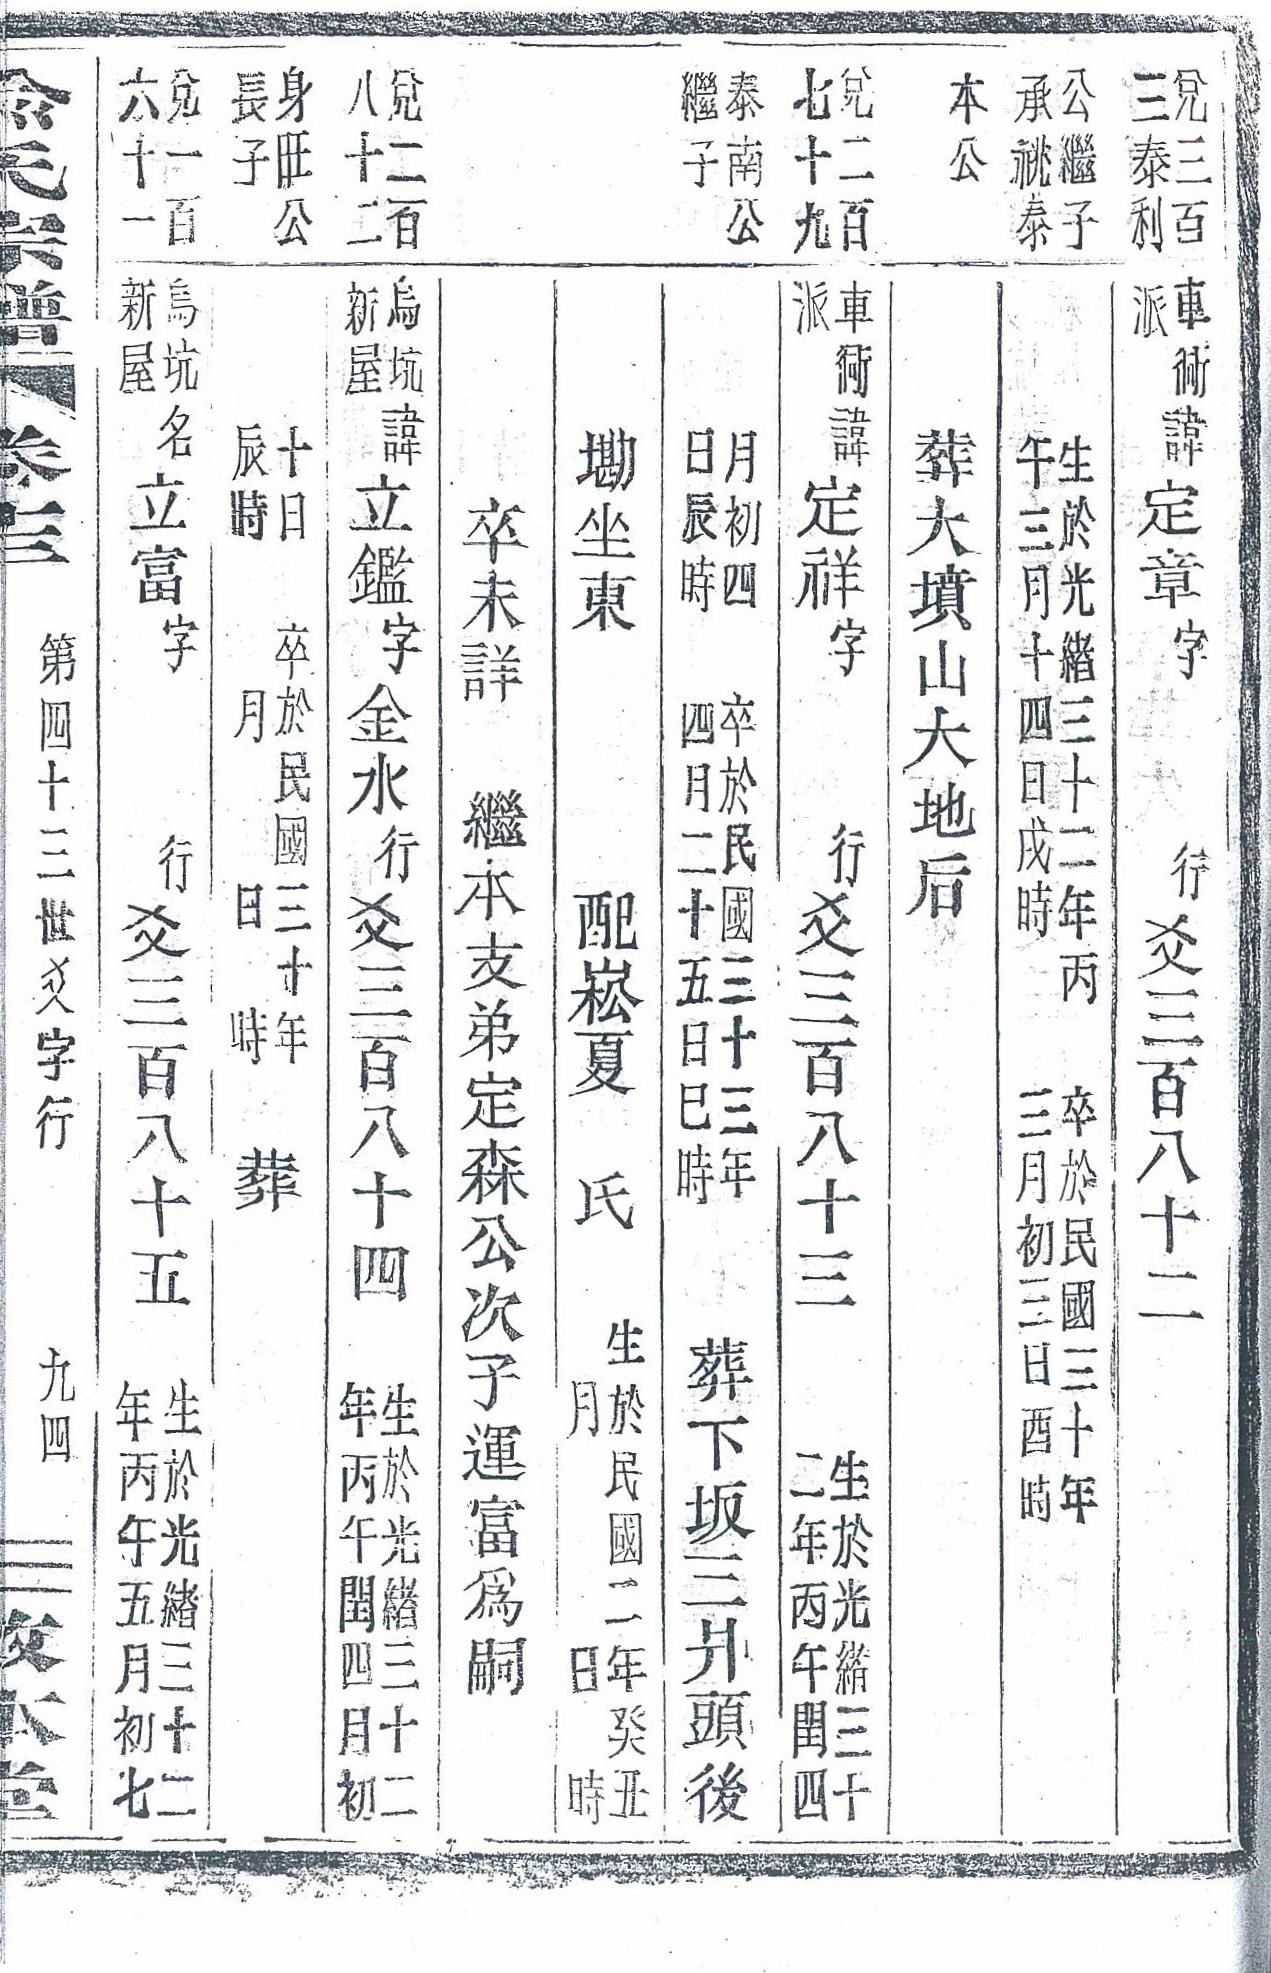 兌三百
三泰利
公繼子
承祧泰
本公
兌二百
七十九
泰南公
繼子
兌二百
八十二
身旺公
長子
兌一百
六十一
車衕
派
諱定章字 行爻三百八十二
生於光緒三十二年丙
午三月十四日戌時
卒於民國三十年
三月初三日酉時
葬大墳山大地后
車衕
派
諱定祥字 行爻三百八十三
生於光緒三十
二年丙午閏四
月初四
日辰時
卒於民國三十三年
四月二十五日巳時
葬下坂三爿頭後
墈坐東 配崧夏 氏
生於民國二年癸丑
月 日 時
卒未詳 繼本支弟定森公次子運富爲嗣
烏坑
新屋
諱立鑑字金水行爻三百八十四
生於光緒三十二
年丙午閏四月初
十日
辰時
卒於民國三十年
月 日 時
葬
烏坑
新屋
名立富字 行爻三百八十五
生於光緒三十二
年丙午五月初七
氏宗譜 卷三 第四十三世爻字行 九四 敦本堂